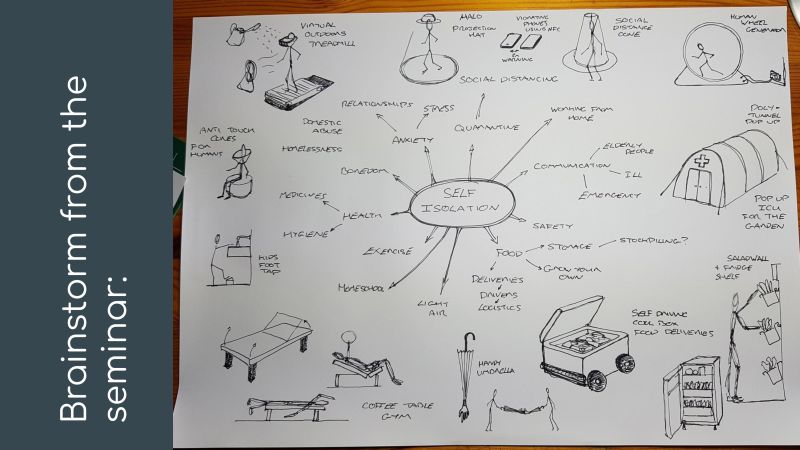 Brainstorm from the
seminar:
VIRTUAL
OUTDOORS
TREADMILL
HALO
PROJECTION
HAT
VIBRATING
PHONES
USING NFC
WARNING
SOCIAL
DISTANCE
CONE
HUMAN
WHEEL
GENERATOR
SOCIAL DISTANCING
RELATIONSHIPS
STRESS
DOMESTIC
ABUSE
ANXIETY
QUARANTINE
WORKING FROM
HOME
ANTI TOUCH
CONES
FOR
HUMANS
HOMELESSNESS
BOREDOM
COMMUNICATION
ELDERLY
PEOPLE
ILL
EMERGENCY
POLY-
TUNNEL
POP UP
SELF
ISOLATION
MEDICINES
HEALTH
HYGIENE
SAFETY
POP UP
ICU
FOR THE
GARDEN
EXERCISE
FOOD
STORAGE
STOCKPILING?
GROW YOUR
OWN
KIDS
FOOT
TAP
HOMESCHOOL
LIGHT
AIR
DELIVERIES
DRIVERS
LOGISTICS
SALADWALL
+ FRIDGE
SHELF
SELF DRIVING
COOL BOX
FOOD DELIVERIES
HANDY
UMBRELLA
COFFEE TABLE
GYM